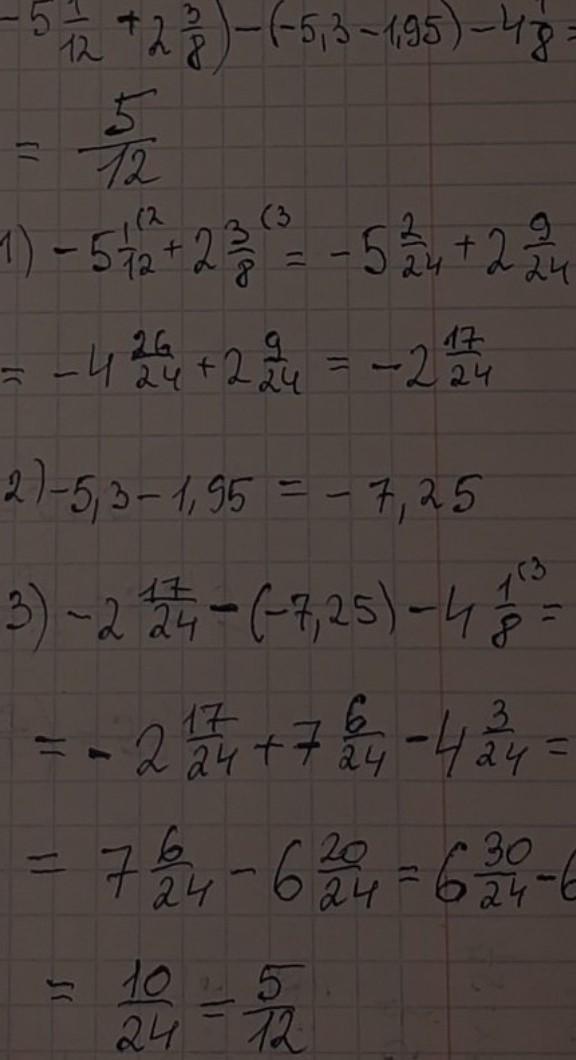 -5 1/12 + 2 3/8) - (-5,3 - 1,95) - 4 1/8 =
= 5/12
1) -5 1/12 (2 + 2 3/8 (3 = -5 2/24 + 2 9/24
= -4 26/24 + 2 9/24 = -2 17/24
2) -5,3 - 1,95 = -7,25
3) -2 17/24 - (-7,25) - 4 1/8 (3 =
= -2 17/24 + 7 6/24 - 4 3/24 =
= 7 6/24 - 6 20/24 = 6 30/24 - 6
= 10/24 = 5/12